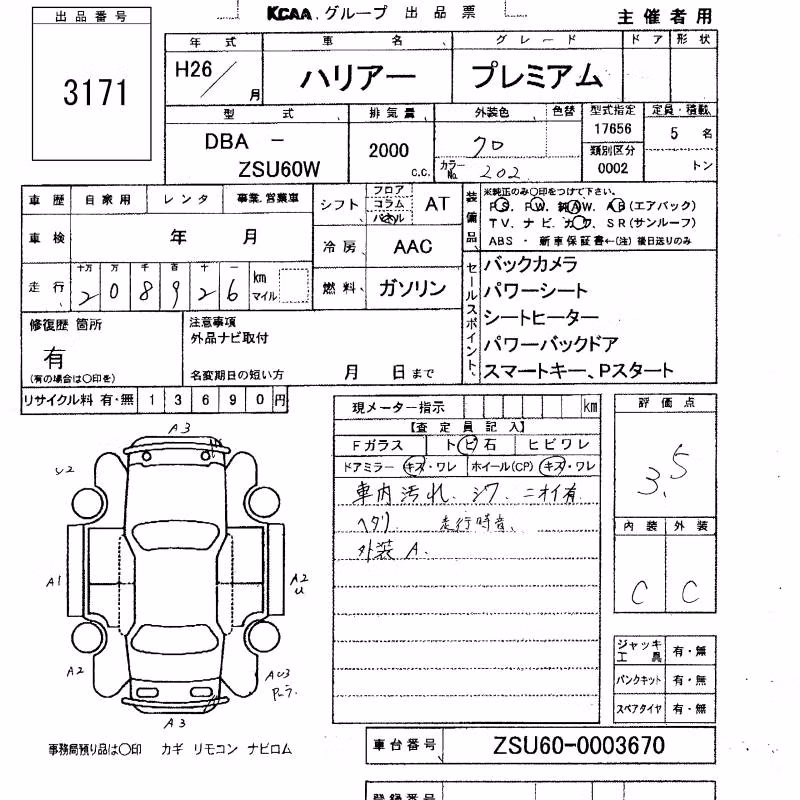 KCAA グループ 出品票
主催者用
出品番号
3171
年式 車名 グレード ドア 形状
H26/ 月 ハリアー プレミアム
型式 排気量 外装色 色替 型式指定 定員・積載
DBA - ZSU60W
2000 c.c.
クロ
カラーNo. 202
17656
類別区分
0002
5 名
トン
車歴 自家用 レンタ 事業.営業車
車検 年 月
走行 十万 万 千 百 十 一
208926 km マイル
シフト フロア コラム パネル AT
冷房 AAC
燃料 ガソリン
装備品
※純正のみ〇印をつけて下さい。
PS. PW. 純AW. AB(エアバック)
TV. ナビ. カワ. SR(サンルーフ)
ABS・新車保証書←(注) 後日送りのみ
セールスポイント
バックカメラ
パワーシート
シートヒーター
パワーバックドア
スマートキー、Pスタート
修復歴 箇所
有
(有の場合は〇印を)
注意事項
外品ナビ取付
名変期日の短い方 月 日まで
リサイクル料 有・無 13690円
現メーター指示 km
【査定員記入】
Fガラス トビ石 ヒビワレ
ドアミラー キズ・ワレ ホイール(CP) キズ・ワレ
車内汚れ、シワ、ニオイ有
ヘタリ 走行時音、
外装A.
評価点
3.5
内装 外装
C C
ジャッキ工具 有・無
パンクキット 有・無
スペアタイヤ 有・無
A3
A1
A2
U
A2
A3
事務局預り品は〇印 カギ リモコン ナビロム
車台番号 ZSU60-0003670
登録番号